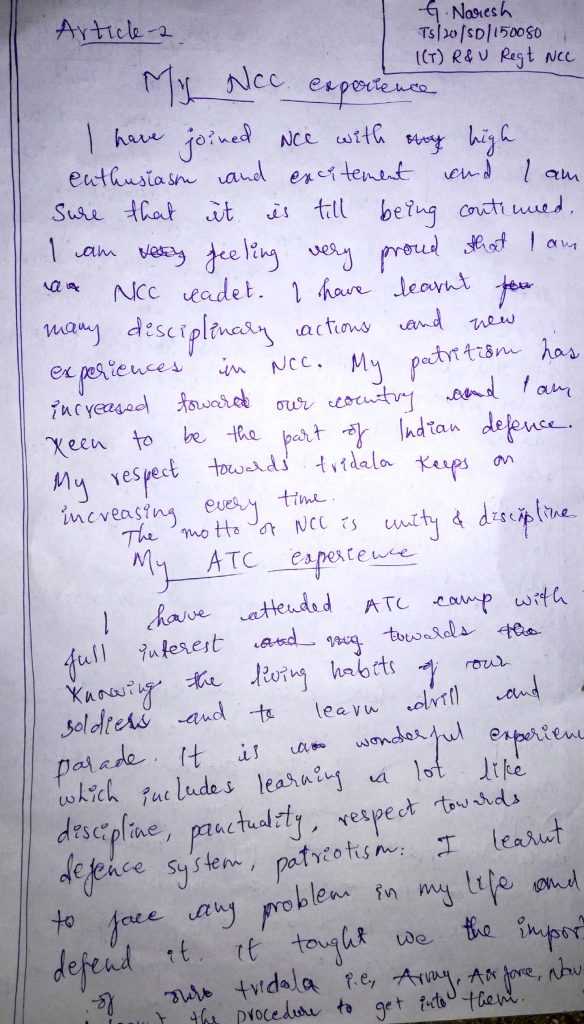 G. Naresh
TS/20/SD/150080
1(T) R&V Regt NCC
Article-2
My NCC experience
I have joined NCC with high
enthusiasm and excitement and I am
Sure that it is till being continued.
I am feeling very proud that I am
a NCC cadet. I have learnt
many disciplinary actions and new
experiences in NCC. My patritism has
increased toward our country and I am
keen to be the part of Indian defence.
My respect towards tridala keeps on
increasing every time.
The motto of NCC is unity & discipline
My ATC experience
I have attended ATC camp with
full interest towards
Knowing the living habits of our
soldiers and to learn drill and
parade. It is a wonderful experien
which includes learning a lot like
discipline, punctuality, respect towards
defence system, patriotism. I learnt
to face any problem in my life and
defend it. It tought we the impor
of our tridala i.e, Army, Air force, Nav
the procedure to get into them.